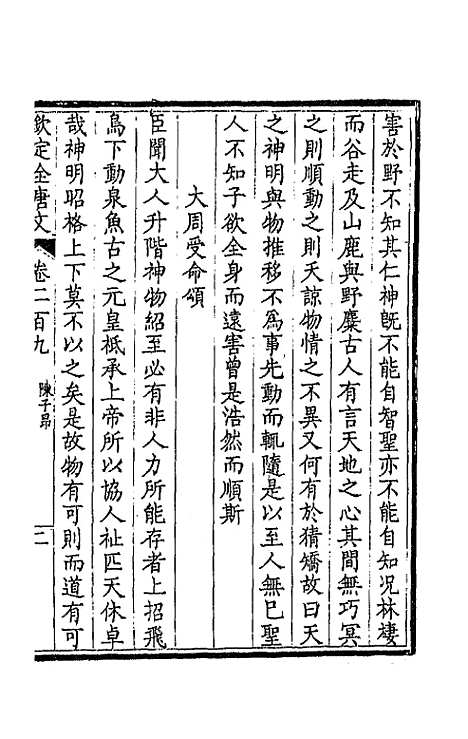 害於野不知其仁神旣不能自智聖亦不能自知况林棲
而谷走及山鹿與野麋古人有言天地之心其間無巧冥
之則順動之則夭諒物情之不異又何有於猜矯故曰天
之神明與物推移不爲事先動而輒隨是以至人無已聖
人不知子欲全身而遠害曾是浩然而順斯
大周受命頌
臣聞大人升階神物紹至必有非人力所能存者上招飛
鳥下動泉魚古之元皇祗承上帝所以協人祉匹天休卓
哉神明昭格上下莫不以之矣是故物有可則而道有可
欽定全唐文
卷二百九
陳子昂
二